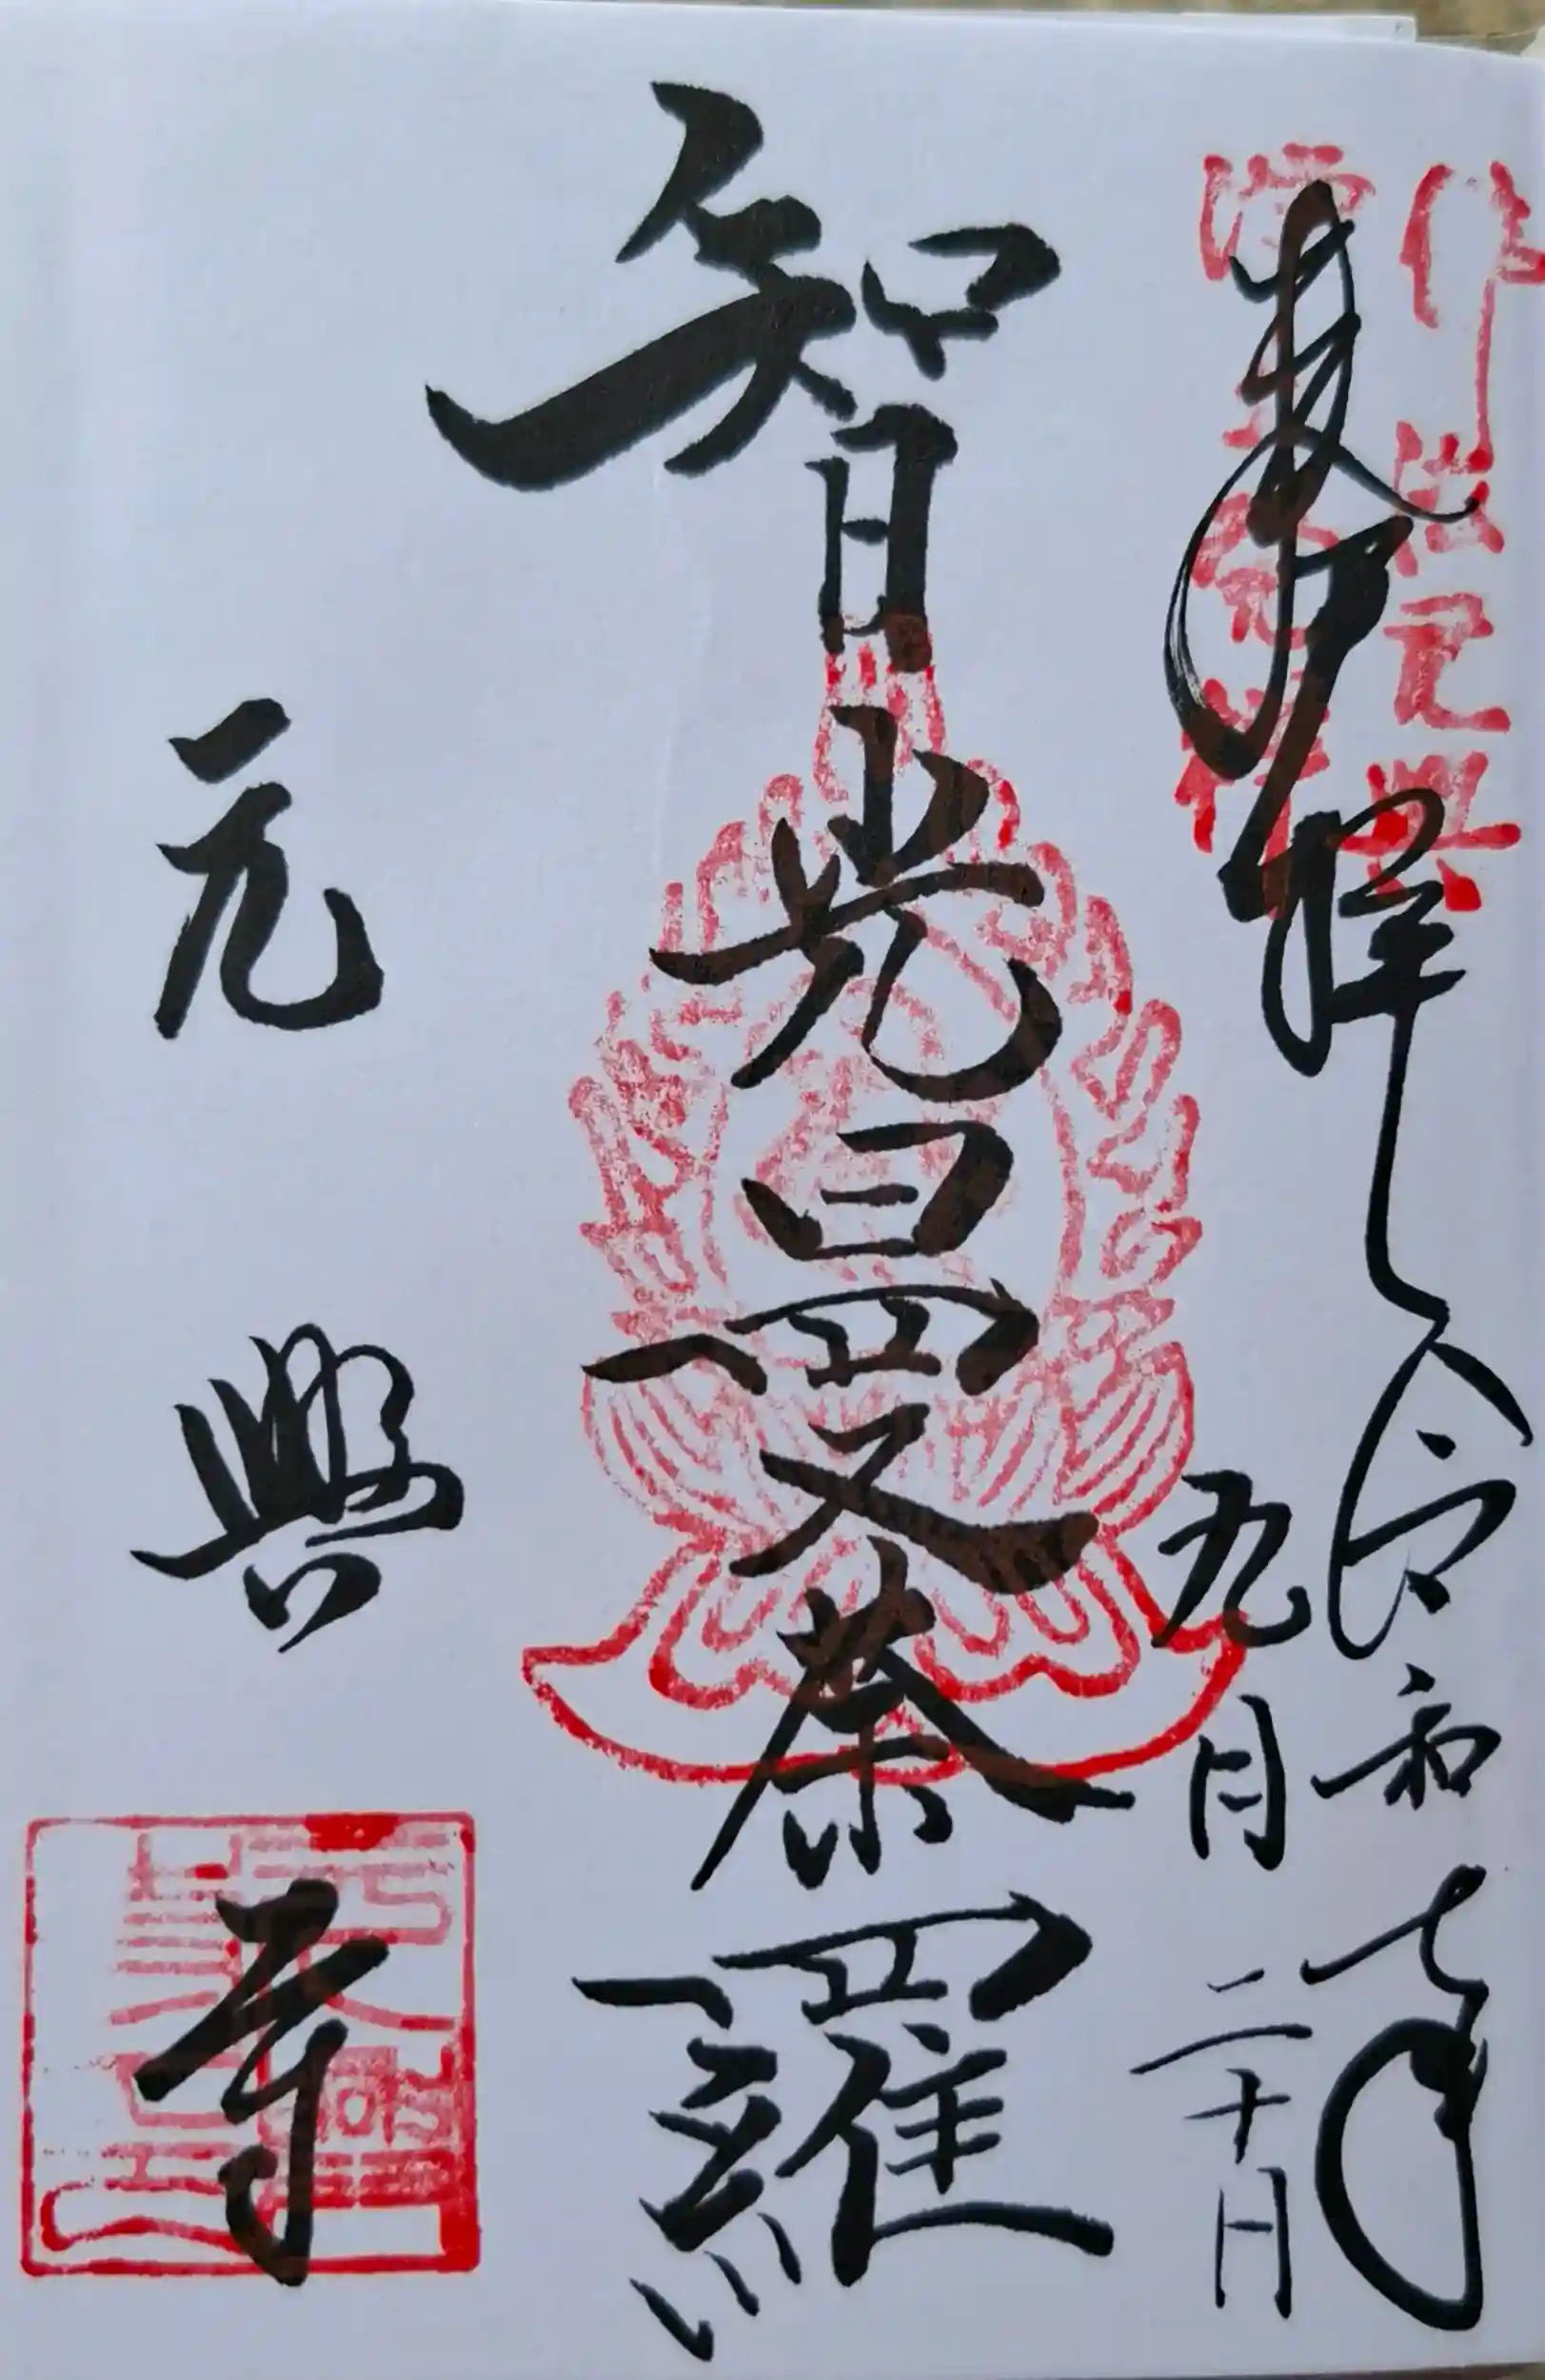 佛法元興
奉拝
令和七年
九月二十日
智光曼荼羅
元興寺